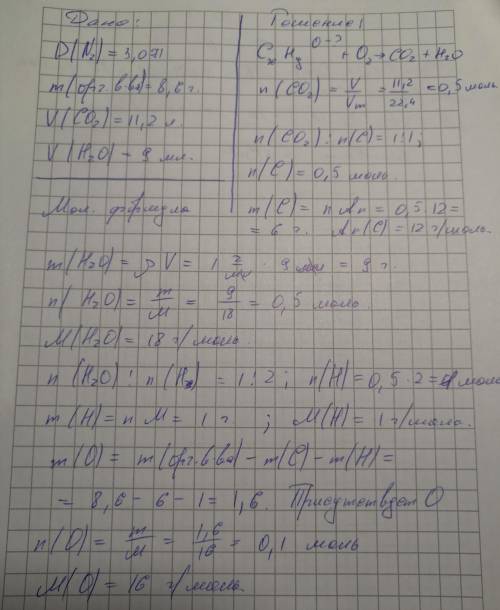 Дано:
D(N₂) = 3,071
m(орг. в-ва) = 8,6 г.
V(CO₂) = 11,2 л.
V(H₂O) - 9 мл.
Мол. формула
Решение:
CₓHᵧ O-? + O₂ → CO₂ + H₂O
n(CO₂) = V/Vm = 11,2/22,4 = 0,5 моль
n(CO₂) : n(C) = 1:1;
n(C) = 0,5 моль.
m(C) = n Ar = 0,5 · 12 =
= 6 г. Ar(C) = 12 г/моль.
m(H₂O) = ρV = 1 г/мл · 9 мл = 9 г.
n(H₂O) = m/M = 9/18 = 0,5 моль.
M(H₂O) = 18 г/моль.
n(H₂O) : n(H) = 1:2; n(H) = 0,5 · 2 = 1 моль
m(H) = n M = 1 г ; M(H) = 1 г/моль.
m(O) = m(орг. в-ва) - m(C) - m(H) =
= 8,6 - 6 - 1 = 1,6. Присутствует O
n(O) = m/M = 1,6/16 = 0,1 моль
M(O) = 16 г/моль.